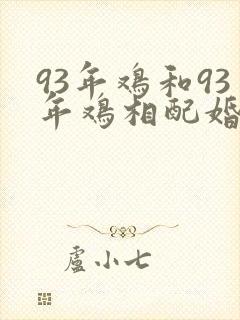 93年鸡和93
年鸡相配婚
盧小七